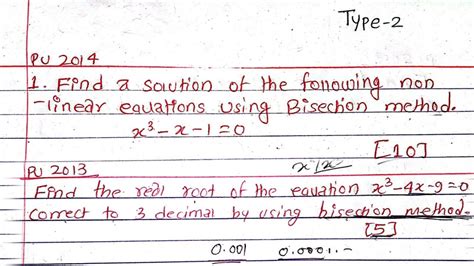 Type-2
PU 2014
1. Find a solution of the following non
-linear equations using Bisection method.
x³-x-1=0
[10]
PU 2013
Find the real root of the equation x³-4x-9=0
correct to 3 decimal by using bisection method.
[5]
0.001 0.0001.-